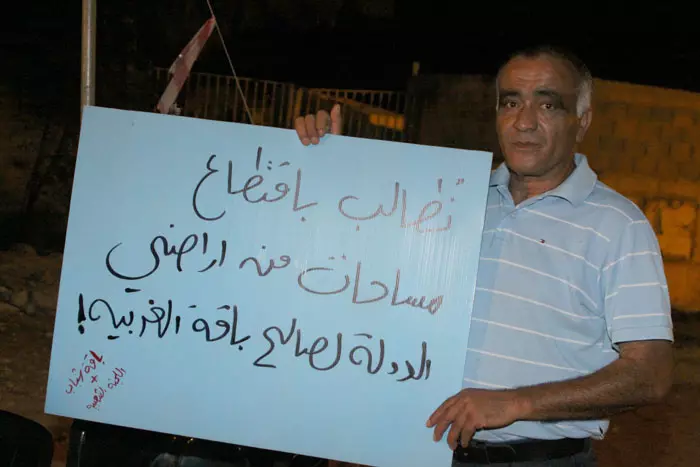 نطالب باقتطاع
مساحات من اراضي
الدولة لصالح باقة الغربية!
باقة شباب
+
اللجنة الشعبية